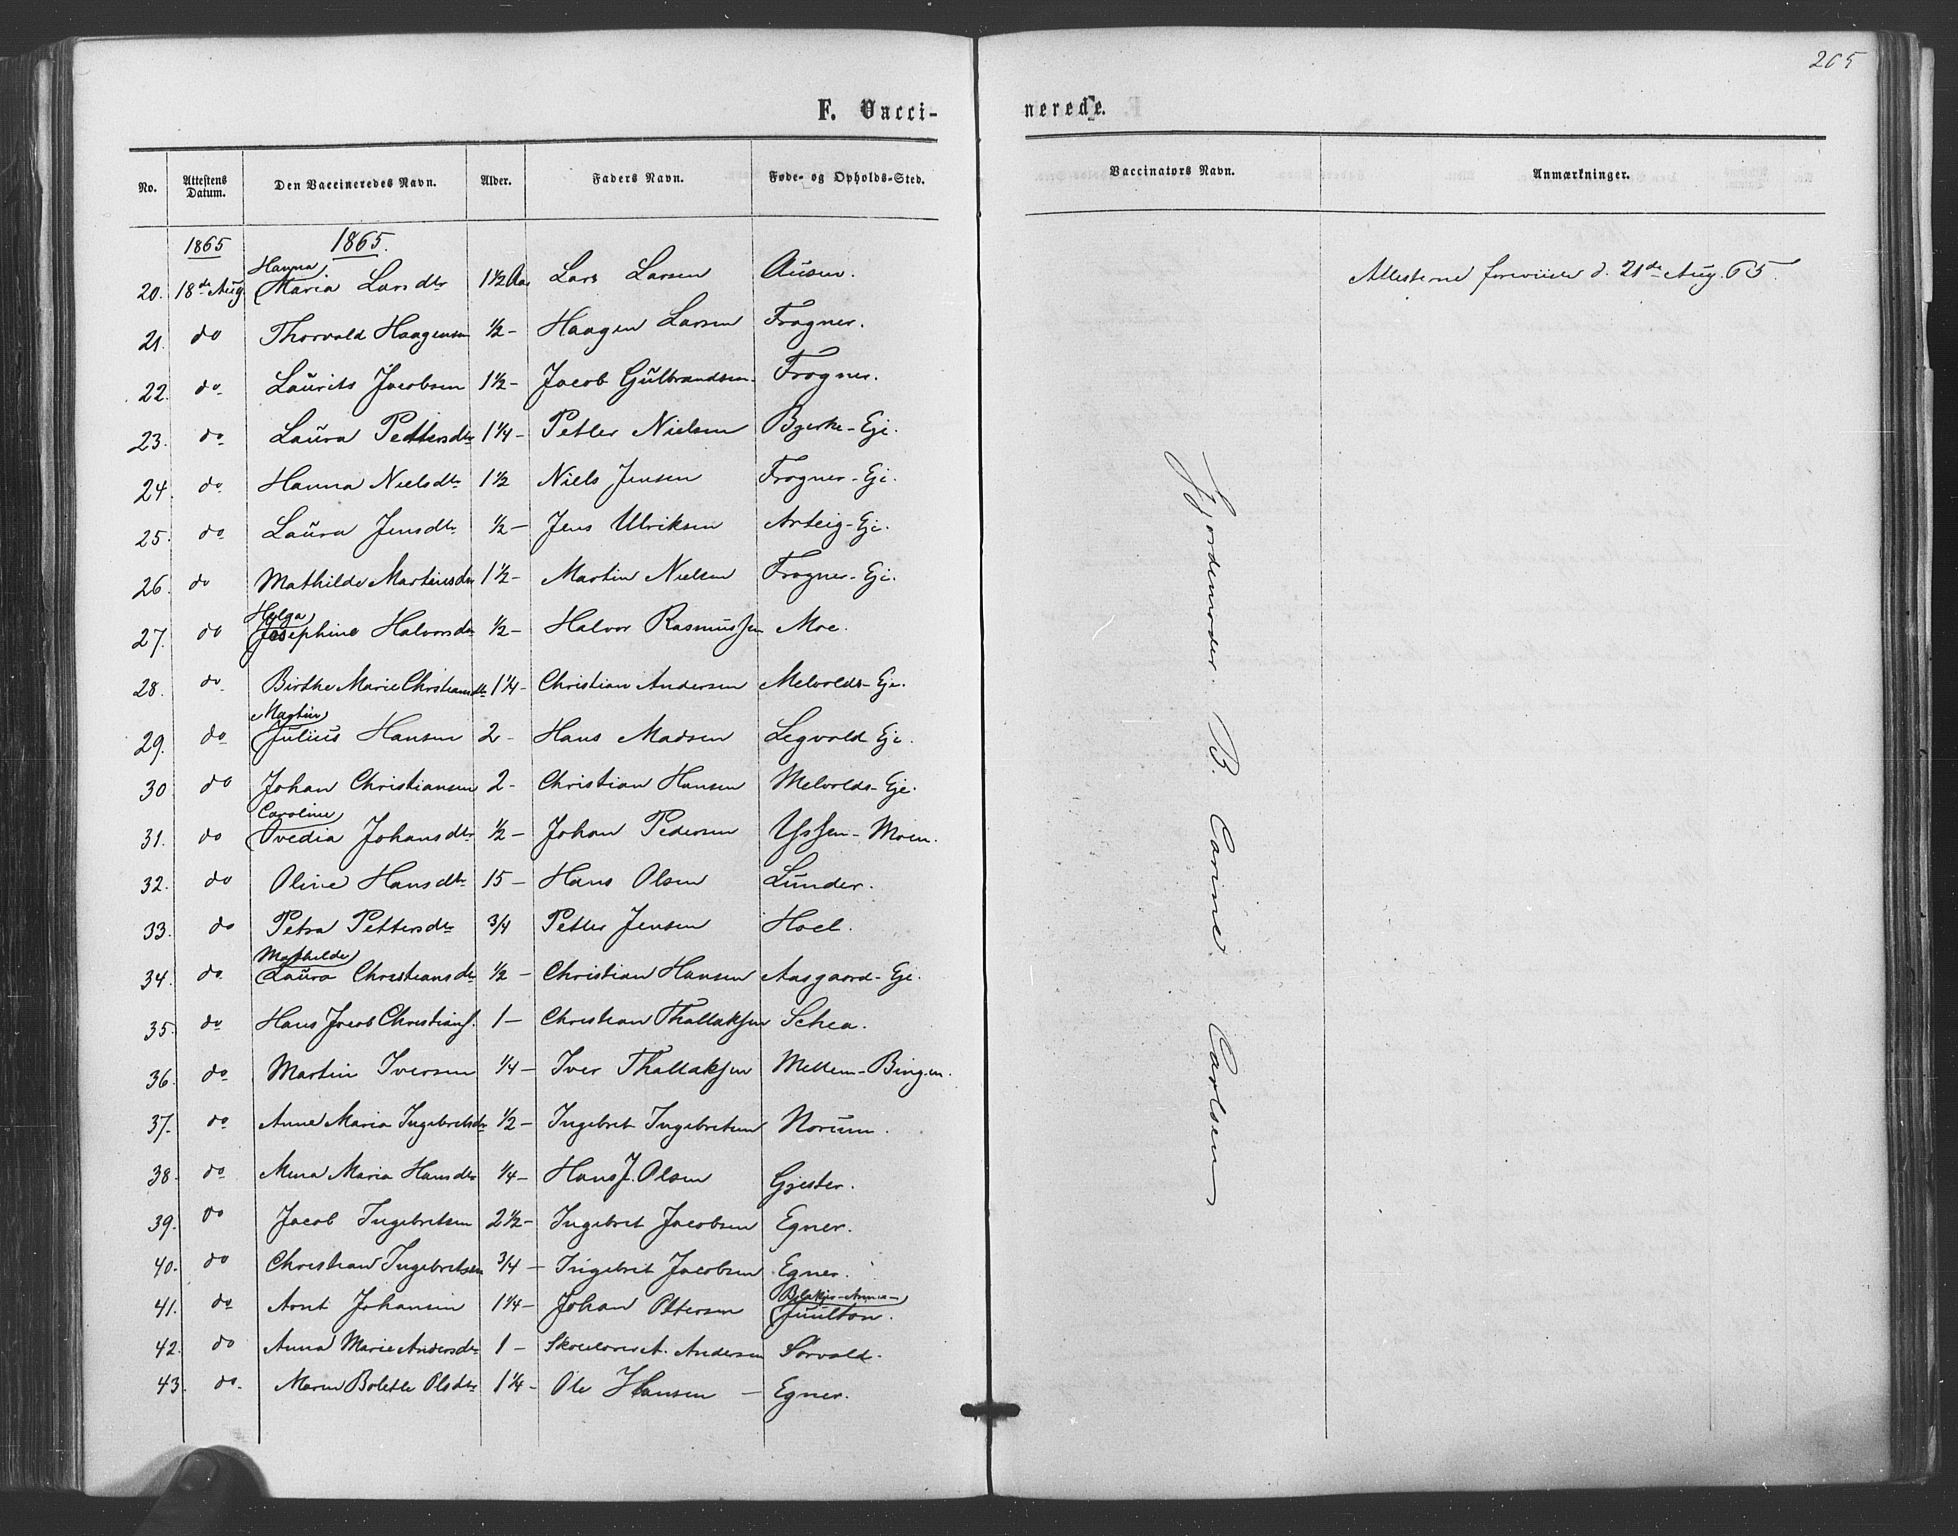 265
F. Vacci-
nerede.
No. Attestens Datum. Den Vaccineredes Navn. Alder. Faders Navn. Føde- og Opholds-Sted. Vaccinators Navn. Anmærkninger.
1865 1865.
Hanna
20. 18de Aug Maria Larsdtr 1½ Aar Lars Larsen Ausen. Attesterne foreviiste d. 21de Aug. 65.
21. do Thorvald Haagensen ½ - Haagen Larsen Frogner.
22. do Laurits Jacobsen 1½ - Jacob Gulbrandsen Frogner.
23. do Laura Pettersdtr 1¼ - Petter Nielsen Bjerke-Eje.
24. do Hanna Nielsdtr 1½ Niels Jensen Frogner-Ej.
25. do Laura Jensdtr ½ - Jens Ulriksen Arteig-Ej.
26. do Mathilde Martinsdtr 1½ - Martin Nielsen Frogner-Ej.
Helga
27. do Josephine Halvorsdtr ½ - Halvor Rasmussen Moe.
28. do Birthe Marie Christiansdtr 1¼ - Christian Andersen Melvolds-Eje.
Martin
29. do Julius Hansen 2 - Hans Madsen Legvold Ej.
30 do Johan Christiansen 2 - Christian Hansen Melvolds-Eje.
Caroline
31. do Ovedia Johansdtr ½ - Johan Pedersen Yssen-Moen.
32. do Oline Hansdtr 15 - Hans Olsen Lunder.
33. do Petra Pettersdtr ¾ Petter Jensen Hoel.
Mathilde
34. do Laura Christiansdtr ½ - Christian Hansen Aasgaard-Eje.
35. do Hans Jacob Christians. 1 - Christian Thallaksen Schea.
36. do Martin Iversen ¼ - Iver Thallaksen Mellem-Bingen.
37. do Anne Maria Ingebretsdtr ½ - Ingebret Ingebretsen Norum.
38. do Mina Maria Hansdtr ¼ - Hans J. Olsen Gjester.
39. do Jacob Ingebretsen 2½ - Ingebret Jacobsen Egner.
40. do Christian Ingebretsen ¾ - Ingebret Jacobsen Egner.
41. do Arnt Johansen 1¼ - Johan Ottersen Blakjer-Annex-
Juulton.
42. do Anna Marie Andersdtr 1 - Skolelærer A. Andersen Sørvald.
43. do. Maren Bolette Olsdtr 1¼ - Ole Hansen - Egner.
Gjordemoder B. Carine Carlsen